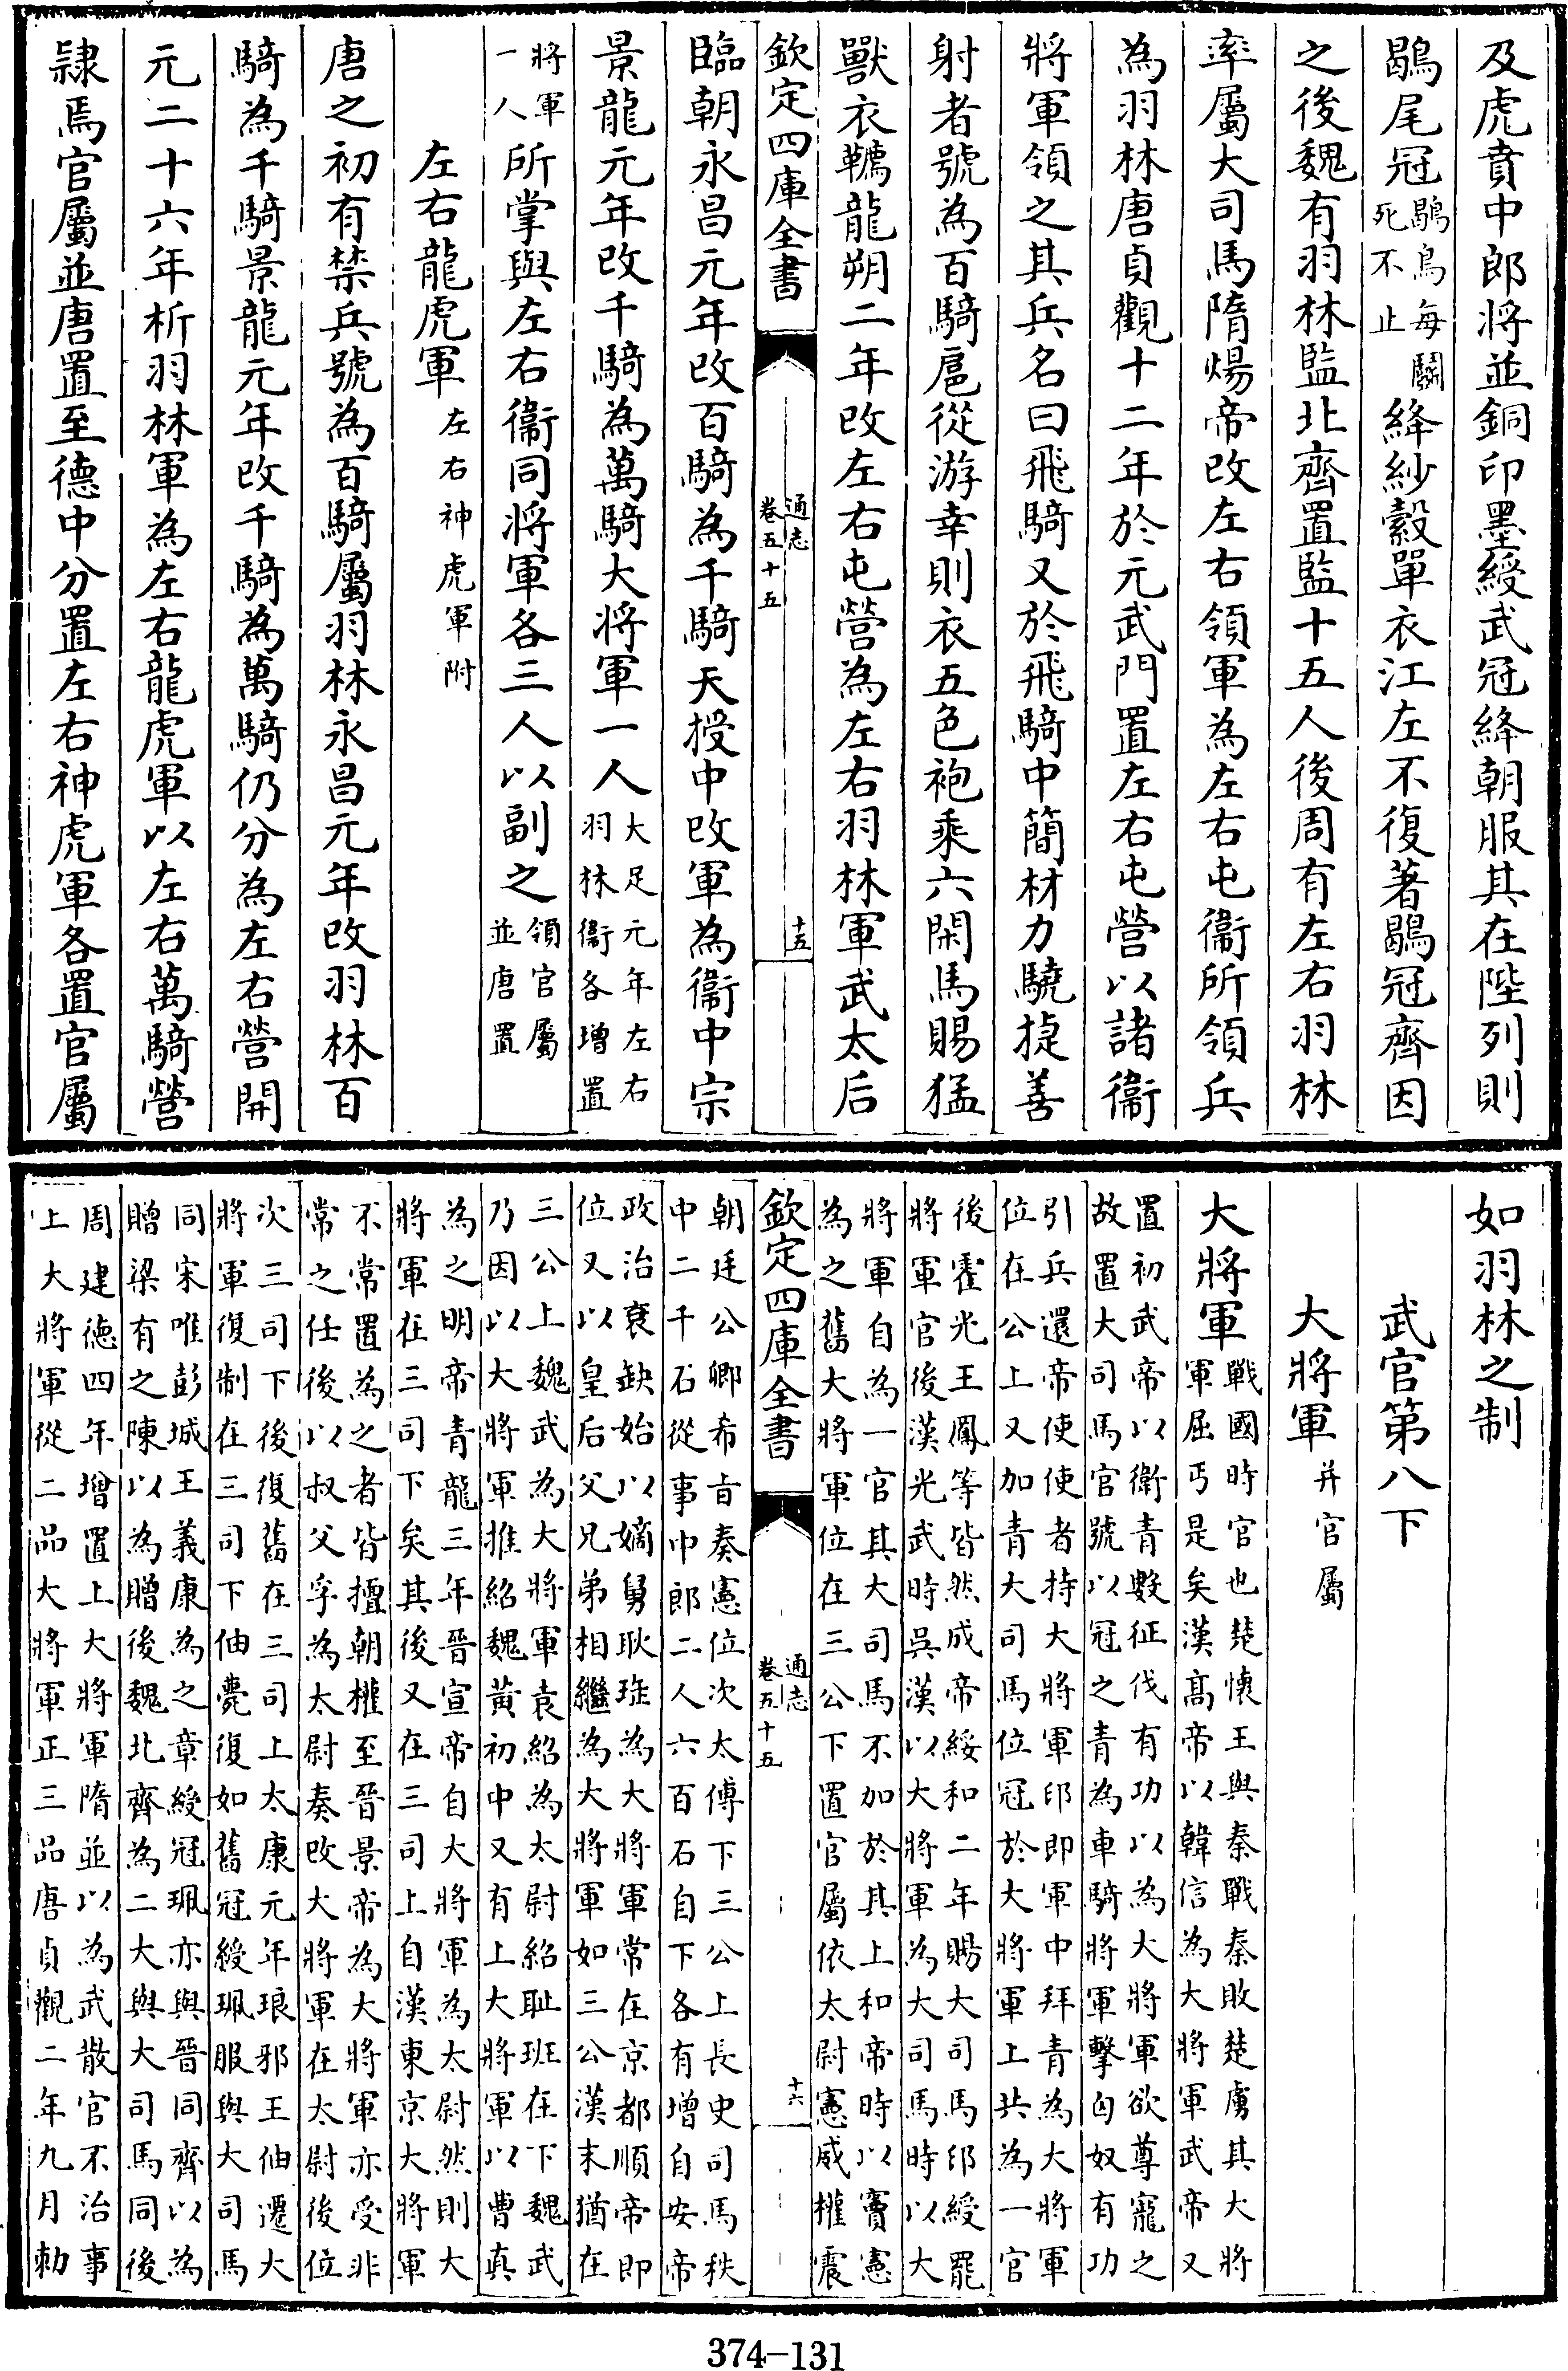 及虎賁中郎將並銅印墨綬武冠絳朝服其在陛列則
鶡尾冠鶡鳥每鬬死不止絳紗縠單衣江左不復著鶡冠齊因
之後魏有羽林監北齊置監十五人後周有左右羽林
率屬大司馬隋煬帝改左右領軍為左右屯衞所領兵
為羽林唐貞觀十二年於元武門置左右屯營以諸衞
將軍領之其兵名曰飛騎又於飛騎中簡材力驍捷善
射者號為百騎扈從游幸則衣五色袍乘六閑馬賜猛
獸衣韉龍朔二年改左右屯營為左右羽林軍武太后
欽定四庫全書
通志
卷五十五
十五
臨朝永昌元年改百騎為千騎天授中改軍為衞中宗
景龍元年改千騎為萬騎大將軍一人大足元年左右羽林衞各增置
將軍一人所掌與左右衞同將軍各三人以副之領官屬並唐置
左右龍虎軍左右神虎軍附
唐之初有禁兵號為百騎屬羽林永昌元年改羽林百
騎為千騎景龍元年改千騎為萬騎仍分為左右營開
元二十六年析羽林軍為左右龍虎軍以左右萬騎營
隸焉官屬並唐置至德中分置左右神虎軍各置官屬
如羽林之制
武官第八下
大將軍并官屬
大將軍戰國時官也楚懷王與秦戰秦敗楚虜其大將
軍屈丐是矣漢高帝以韓信為大將軍武帝又
置初武帝以衞青數征伐有功以為大將軍欲尊寵之
故置大司馬官號以冠之青為車騎將軍擊匈奴有功
引兵還帝使使者持大將軍印即軍中拜青為大將軍
位在公上又加青大司馬位冠於大將軍上共為一官
後霍光王鳳等皆然成帝綏和二年賜大司馬印綬罷
將軍官後漢光武時吳漢以大將軍為大司馬時以大
將軍自為一官其大司馬不加於其上和帝時以竇憲
為之舊大將軍位在三公下置官屬依太尉憲威權震
欽定四庫全書
通志
卷五十五
十六
朝廷公卿希旨奏憲位次太傅下三公上長史司馬秩
中二千石從事中郎二人六百石自下各有增自安帝
政治衰缺始以嫡舅耿珪為大將軍常在京都順帝即
位又以皇后父兄弟相繼為大將軍如三公漢末猶在
三公上魏武為大將軍袁紹為太尉紹耻班在下魏武
乃因以大將軍推紹魏黃初中又有上大將軍以曹真
為之明帝青龍三年晉宣帝自大將軍為太尉然則大
將軍在三司下矣其後又在三司上自漢東京大將軍
不常置為之者皆擅朝權至晉景帝為大將軍亦受非
常之任後以叔父孚為太尉奏改大將軍在太尉後位
次三司下後復舊在三司上太康元年琅邪王伷遷大
將軍復制在三司下伷薨復如舊冠綬珮服與大司馬
同宋唯彭城王義康為之章綬冠珮亦與晉同齊以為
贈梁有之陳以為贈後魏北齊為二大與大司馬同後
周建德四年增置上大將軍隋並以為武散官不治事
上大將軍從二品大將軍正三品唐貞觀二年九月勅
374-131